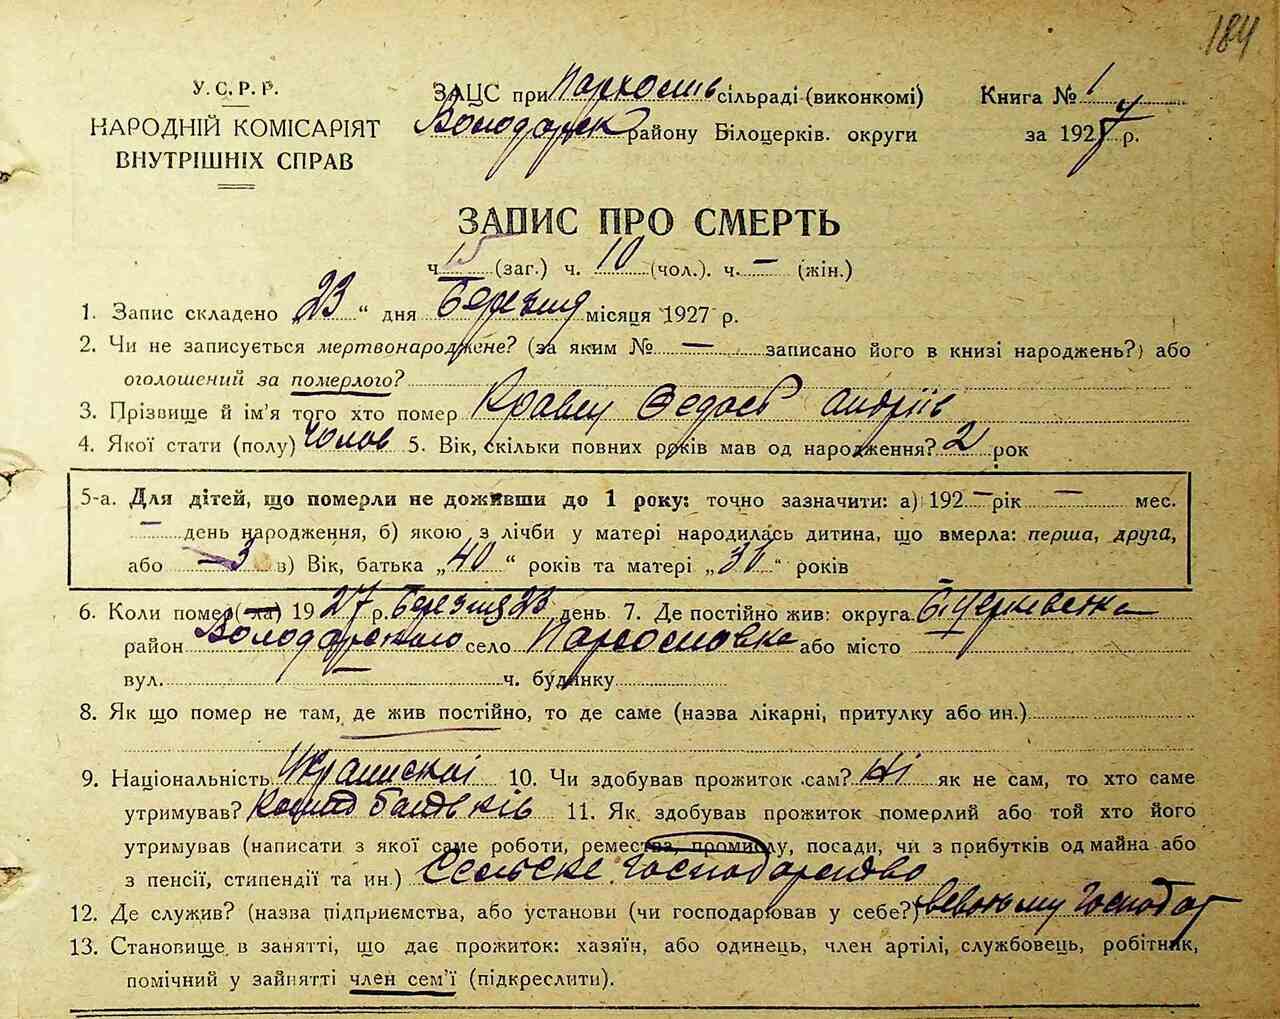 184
У. С. Р. Р.
НАРОДНІЙ КОМІСАРІЯТ
ВНУТРІШНІХ СПРАВ
ЗАЦС при Пархомів сільраді (виконкомі)
Володарськ району Білоцерків. округи
Книга № 1
за 1927 р.
ЗАПИС ПРО СМЕРТЬ
ч. 15 (заг.) ч. 10 (чол.). ч. – (жін.)
1. Запис складено „23“ дня Березня місяця 1927 р.
2. Чи не записується мертвонароджене? (за яким № – записано його в книзі народжень?) або
оголошений за померлого?
3. Прізвище й ім'я того хто помер Кравец Федось Андріїв
4. Якої стати (полу) Чолов 5. Вік, скільки повних років мав од народження? 2 рок
5-а. Для дітей, що померли не доживши до 1 року: точно зазначити: а) 192 – рік – мес.
– день народження, б) якою з лічби у матері народилась дитина, що вмерла: перша, друга,
або – 3 в) Вік, батька „40“ років та матері „36“ років
6. Коли помер (ла) 1927 р. Березня 23 день 7. Де постійно жив: округа Бі церківська
район Володарського село Пархомовка або місто
вул. – ч. будинку
8. Як що помер не там, де жив постійно, то де саме (назва лікарні, притулку або ин.)
9. Національність 10. Чи здобував прожиток сам? Ні як не сам, то хто саме
утримував? Кошт батьків 11. Як здобував прожиток померлий або той хто його
утримував (написати з якої саме роботи, ремества, промислу, посади, чи з прибутків од майна або
з пенсії, стипендії та ин.) Сельске господарство
12. Де служив? (назва підприємства, або установи (чи господарював у себе?) господар
13. Становище в занятті, що дає прожиток: хазяїн, або одинець, член артілі, службовець, робітник,
помічний у зайнятті член сем'ї (підкреслити).